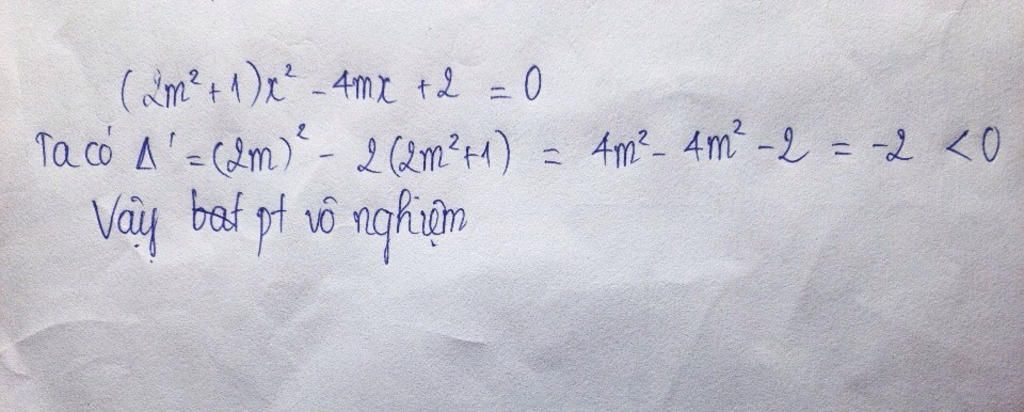 (2m²+1)x² - 4mx + 2 = 0
Ta có Δ' = (2m)² - 2(2m²+1) = 4m² - 4m² - 2 = -2 < 0
Vậy bat pt vô nghiệm